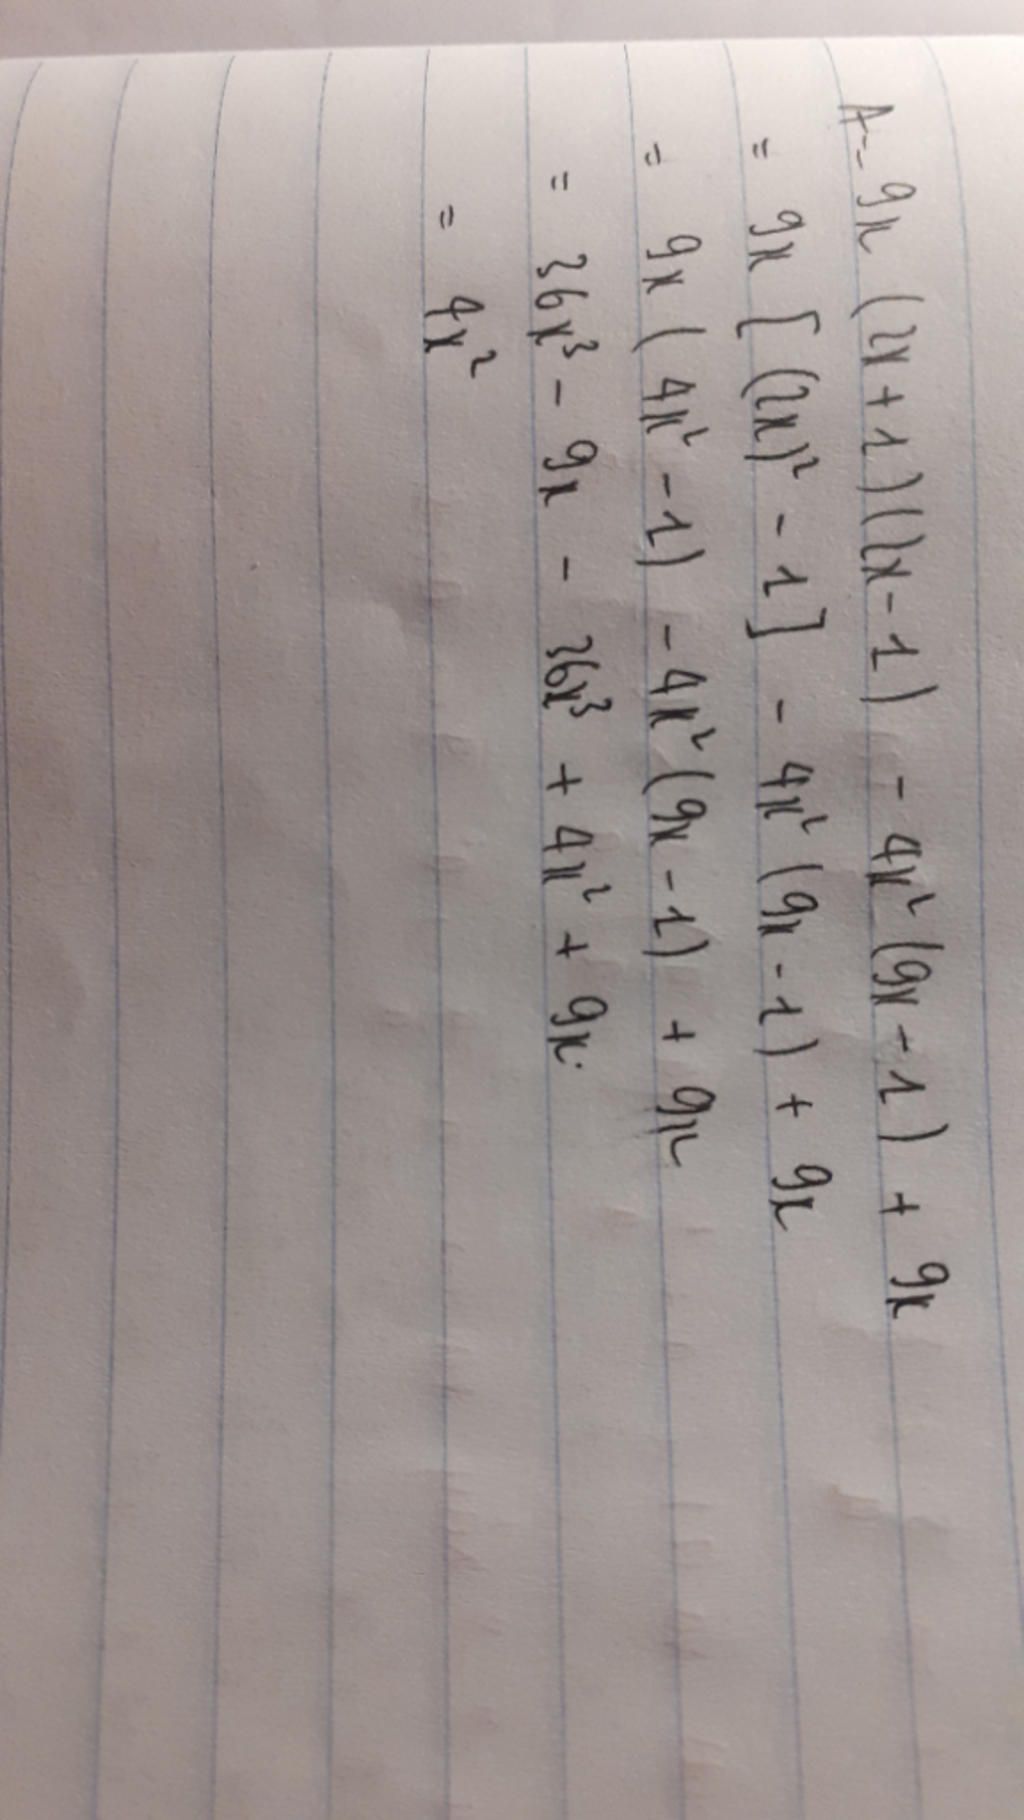 A = 9x (2x+1)(2x-1) - 4x² (9x-1) + 9x
= 9x [(2x)² - 1] - 4x² (9x-1) + 9x
= 9x (4x² -1) -4x² (9x-1) + 9x
= 36x³ - 9x - 36x³ + 4x² + 9x.
= 4x²